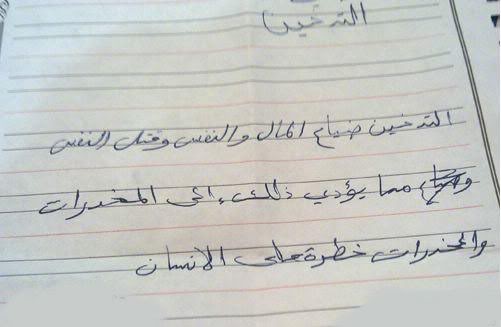 التدخين
التدخين ضياع المال والنفس وقتل النفس
مما يؤدي ذلك الى المخدرات
والمخدرات خطرة على الانسان